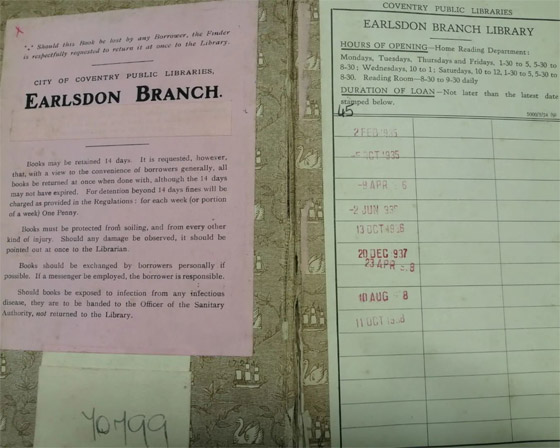 *** Should this Book be lost by any Borrower, the Finder
is respectfully requested to return it at once to the Library.
CITY OF COVENTRY PUBLIC LIBRARIES,
EARLSDON BRANCH.
Books may be retained 14 days. It is requested, however,
that, with a view to the convenience of borrowers generally, all
books be returned at once when done with, although the 14 days
may not have expired. For detention beyond 14 days fines will be
charged as provided in the Regulations: for each week (or portion
of a week) One Penny.
Books must be protected from soiling, and from every other
kind of injury. Should any damage be observed, it should be
pointed out at once to the Librarian.
Books should be exchanged by borrowers personally if
possible. If a messenger be employed, the borrower is responsible.
Should books be exposed to infection from any infectious
disease, they are to be handed to the Officer of the Sanitary
Authority, not returned to the Library.
70799
COVENTRY PUBLIC LIBRARIES
EARLSDON BRANCH LIBRARY
HOURS OF OPENING—Home Reading Department:
Mondays, Tuesdays, Thursdays and Fridays, 1-30 to 5, 5-30 to
8-30; Wednesdays, 10 to 1; Saturdays, 10 to 12, 1-30 to 5, 5-30 to
8-30. Reading Room—8-30 to 9-30 daily
DURATION OF LOAN—Not later than the latest date
stamped below.
45
2 FEB 1935
OCT 1935
APR 6
2 JUN
13 OCT
20 DEC 937
23 APR 8
10 AUG 8
11 OCT